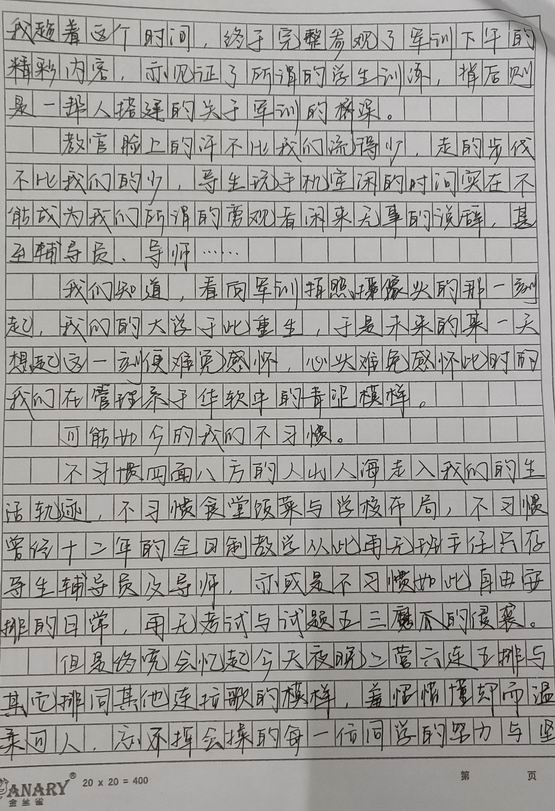 我趁着这个时间，终于完整参观了军训下午的
精彩内容，亦见证了所谓的学生训练，背后则
是一群人搭建的关于军训的桥梁。
教官脸上的汗不比我们流得少，走的步伐
不比我们的少，导生玩手机空闲的时间实在不
能成为我们所谓的旁观看闲来无事的说辞，甚
至辅导员、导师……
我们知道，看向军训拍照摄像头的那一刻
起，我们的大学于此重生，于是未来的某一天
想起这一刻便难免感怀，心头难免感怀此时的
我们在管理系于华软中的青涩模样。
可能如今的我们不习惯。
不习惯四面八方的人山人海走入我们的生
活轨迹，不习惯食堂饭菜与学校布局，不习惯
曾经十二年的全日制教学从此再无班主任只存
导生辅导员及导师，亦或是不习惯如此自由安
排的日常，再无考试与试题五三魔爪的侵袭。
但是终究会忆起今天夜晚二营六连五排与
其它排同其他连拉歌的模样，羞怯懵懂却而温
柔可人，忘不掉会操的每一位同学的努力与坚
CANARY® 20 x 20 = 400 第 页
金丝雀